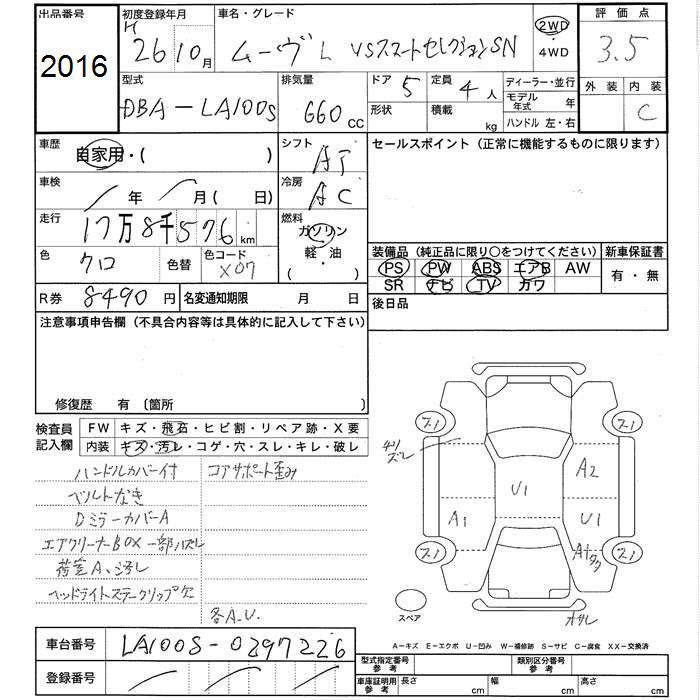 出品番号 初度登録年月 車名・グレード 評価点
2016 H 26 10月 ムーヴL VSスマートセレクションSN 2WD・4WD 3.5
型式 排気量 ドア 5 定員 4人 ディーラー・並行 外装 内装
DBA-LA100S 660 CC 形状 積載 kg モデル年式 年 C
ハンドル 左・右
車歴 自家用・( ) シフト AT セールスポイント(正常に機能するものに限ります)
車検 / 年 / 月( 日) 冷房 AC
走行 17万8千576km 燃料 ガソリン・軽油・( )
色 クロ 色替 色コード X07
装備品(純正品に限り○をつけてください) 新車保証書
PS PW ABS エアB AW 有・無
SR ナビ TV カワ
R券 8490円 名変通知期限 月 日 後日品
注意事項申告欄(不具合内容等は具体的に記入して下さい)
修復歴 有〔箇所 〕
検査員記入欄 FW キズ・飛石・ヒビ割・リペア跡・X要
内装 キズ・汚レ・コゲ・穴・スレ・キレ・破レ
ハンドルカバー付 コアサポート歪み
ベルトなき
Dミラーカバー A
エアクリーナーBOX一部ハズレ
荷室A、汚レ
ヘッドライトステークリップ欠
各A.U.
スソ スソ
ギリズレ A2
U1
A1 U1
スソ A+タタ スソ
スペア
オサレ
A-キズ E-エクボ U-凹み W-補修跡 S-サビ C-腐食 XX-交換済
車台番号 LA100S-0297226
登録番号
型式指定番号参考 類別区分番号参考
車庫証明用参考 長さ cm 幅 cm 高さ cm